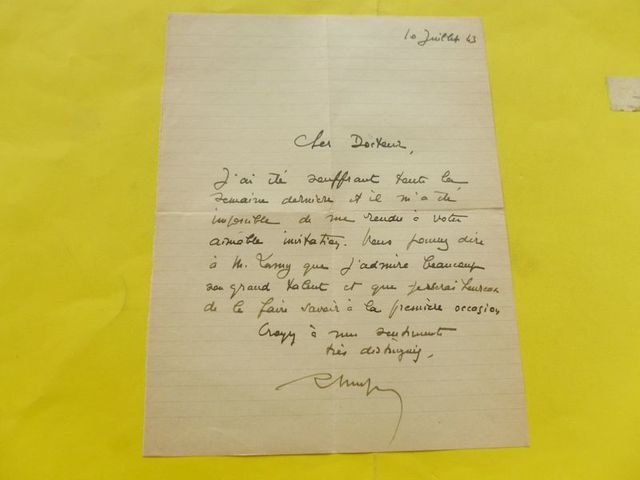 10 Juillet 43
Cher Docteur,
J'ai été souffrant toute la
semaine dernière et il m'a été
impossible de me rendre à votre
aimable invitation. Vous pouvez dire
à M. que j'admire beaucoup
son grand talent et que je serai heureux
de le faire savoir à la première occasion
Croyez à mes sentiments
très distingués,